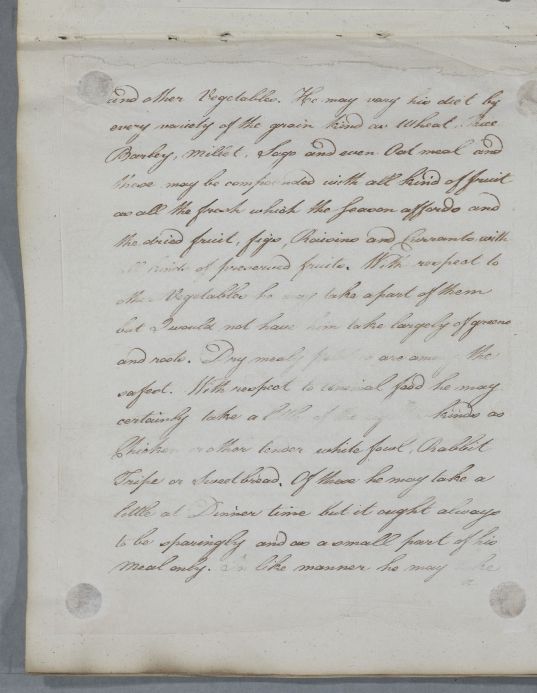 and other Vegetables. He may vary his diet by
every variety of the grain kind as Wheat, Rice
Barley, Millet, Sago and even Oat meal and
these may be compounded with all kind of fruit
as all the fresh which the Season affords and
the dried fruit, figs, Raisins and Currants with
all kinds of preserved fruits. With respect to
other Vegetables he may take a part of them
but I would not have him take largely of greens
and roots. Dry mealy are among the
safest. With respect to animal food he may
certainly take a little of the kinds as
Chicken or other tender white fowl, Rabbit
Tripe or Sweetbread. Of these he may take a
little at Dinner time but it ought always
to be sparingly and as a small part of his
meal only. In like manner he may take
a